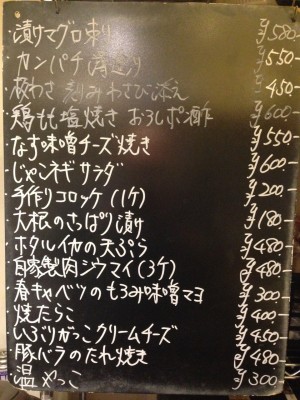 ・漬けマグロ刺し ¥580-
・カンパチ薄造り ¥550-
・板わさ 刻みわさび添え ¥450-
・鶏もも塩焼き おろしポン酢 ¥600-
・なす味噌チーズ焼き ¥550
・じゃこネギサラダ ¥600-
・手作りコロッケ(1ケ) ¥200-
・大根のさっぱり漬け ¥180-
・ホタルイカの天ぷら ¥480-
・自家製肉シウマイ(3ケ) ¥480-
・春キャベツのもろみ味噌マヨ ¥300-
・焼たらこ ¥400-
・いぶりがっこクリームチーズ ¥450-
・豚バラのたれ焼き ¥480-
・温やっこ ¥300-